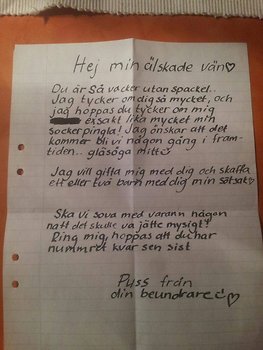 Hej min älskade vän♡
Du är så vacker utan spackel..
Jag tycker om dig så mycket, och
jag hoppas du tycker om mig
exsakt lika mycket min
sockerpingla! Jag önskar att det
kommer bli vi någon gång i fram-
tiden.. glasöga mitt
Jag vill gifta mig med dig och skaffa
ett eller två barn med dig min sötsak♡
Ska vi sova med varann någon
natt det skulle va jätte mysigt?
Ring mig, hoppas att du har
numret kvar sen sist
Puss från
din beundrare☺♡